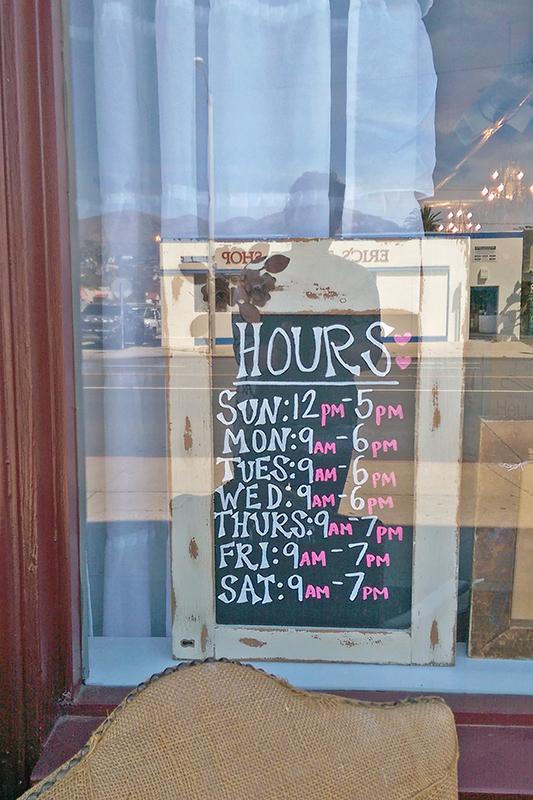 ERIC'S SHOP
HOURS
SUN: 12 PM - 5 PM
MON: 9 AM - 6 PM
TUES: 9 AM - 6 PM
WED: 9 AM - 6 PM
THURS: 9 AM - 7 PM
FRI: 9 AM - 7 PM
SAT: 9 AM - 7 PM